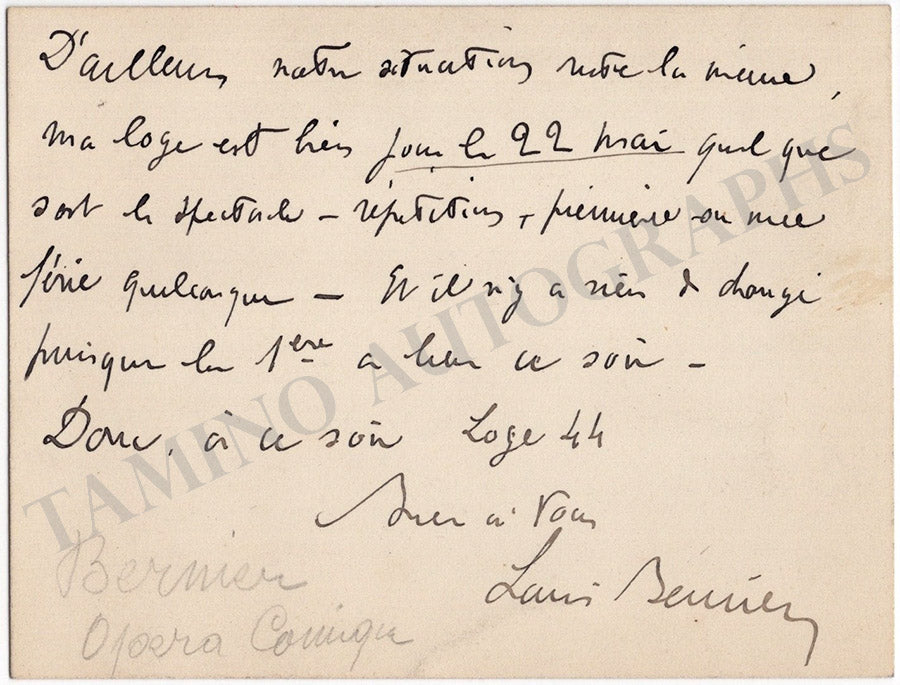 D'ailleurs notre situation reste la même,
ma loge est bien pour le 22 mai quel que
soit le spectacle – répétition, première ou une
série quelconque – Et il n'y a rien de changé
puisque la 1ère a lieu ce soir –
Donc, à ce soir Loge 44
Bien à vous
Louis Bernier
Bernier
Opera Comique
TAMINO AUTOGRAPHS